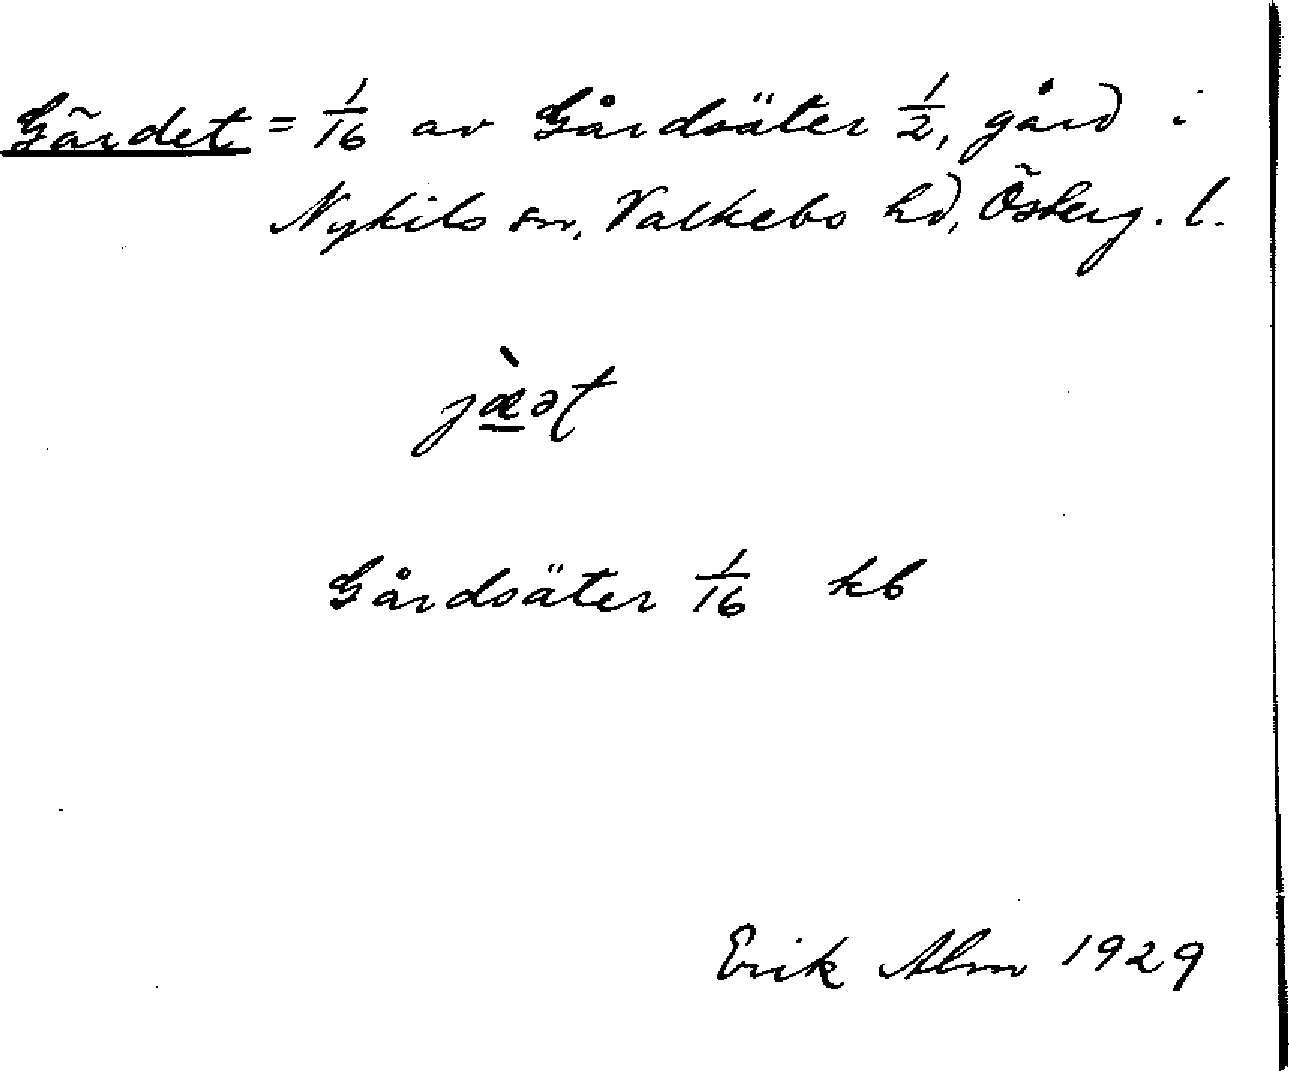 Gärdet = 1/16 av Gårdsäter 1/2, gård i
Nykils sn, Valkebo hd, Österg. l.
jæ̀ət
Gårdsäter 1/16 kb
Erik Alm 1929